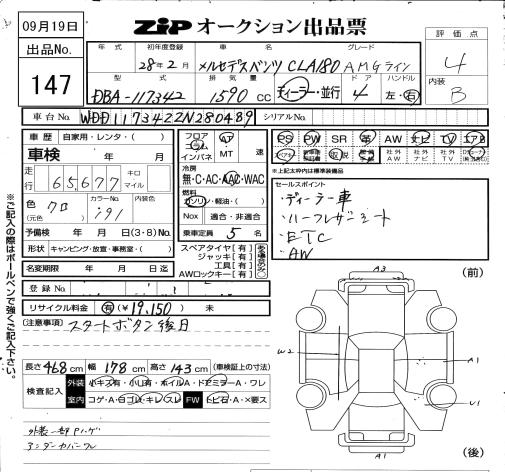 09月19日
ZIP オークション出品票
評価点
4
内装
B
出品No.
147
年式 初年度登録 車名 グレード
28年2月 メルセデスベンツ CLA180 AMGライン
型式 排気量 ドア ハンドル
DBA-117342 1590 cc ディーラー・並行 4 左・右
車台No. WDD1173422N280489 シリアルNo.
車歴 自家用・レンタ・( )
車検 年 月
走行 65,677 キロ マイル
色 クロ カラーNo. 191 内装色
(元色)
予備検 年 月 日 (3・8) No.
形状 キャンピング・放宣・事務室・( )
名変期限 年 月 日迄
登録No.
フロア コラム インパネ AT MT 速
冷房
無・C・AC・AAC・WAC
燃料
ガソリン・軽油・( )
Nox 適合・非適合
乗車定員 5 名
スペアタイヤ [有]
ジャッキ [有]
工具 [有]
AWロックキー [有]
ある場合のみ○
PS PW SR 革 AW ナビ TV エアB
※上記枠内は標準装備品
セールスポイント
・ディーラー車
・ハーフレザーシート
・ETC
・AW
リサイクル料金 有 (¥19,150) 未
[注意事項] スタートボタン後日
長さ 468 cm 幅 178 cm 高さ 143 cm (車検証上の寸法)
検査記入 外装 小キズ有・小凹有・ホイルA・ドアミラーA・ワレ
室内 コゲ・A・ヨゴレ・キレ・スレ FW トビ石・A・X要ス
外装一部Pハゲ
アンダーカバーワレ
(前)
A3
W2
A1
U1
A1
(後)
※ご記入の際はボールペンで強くご記入下さい。